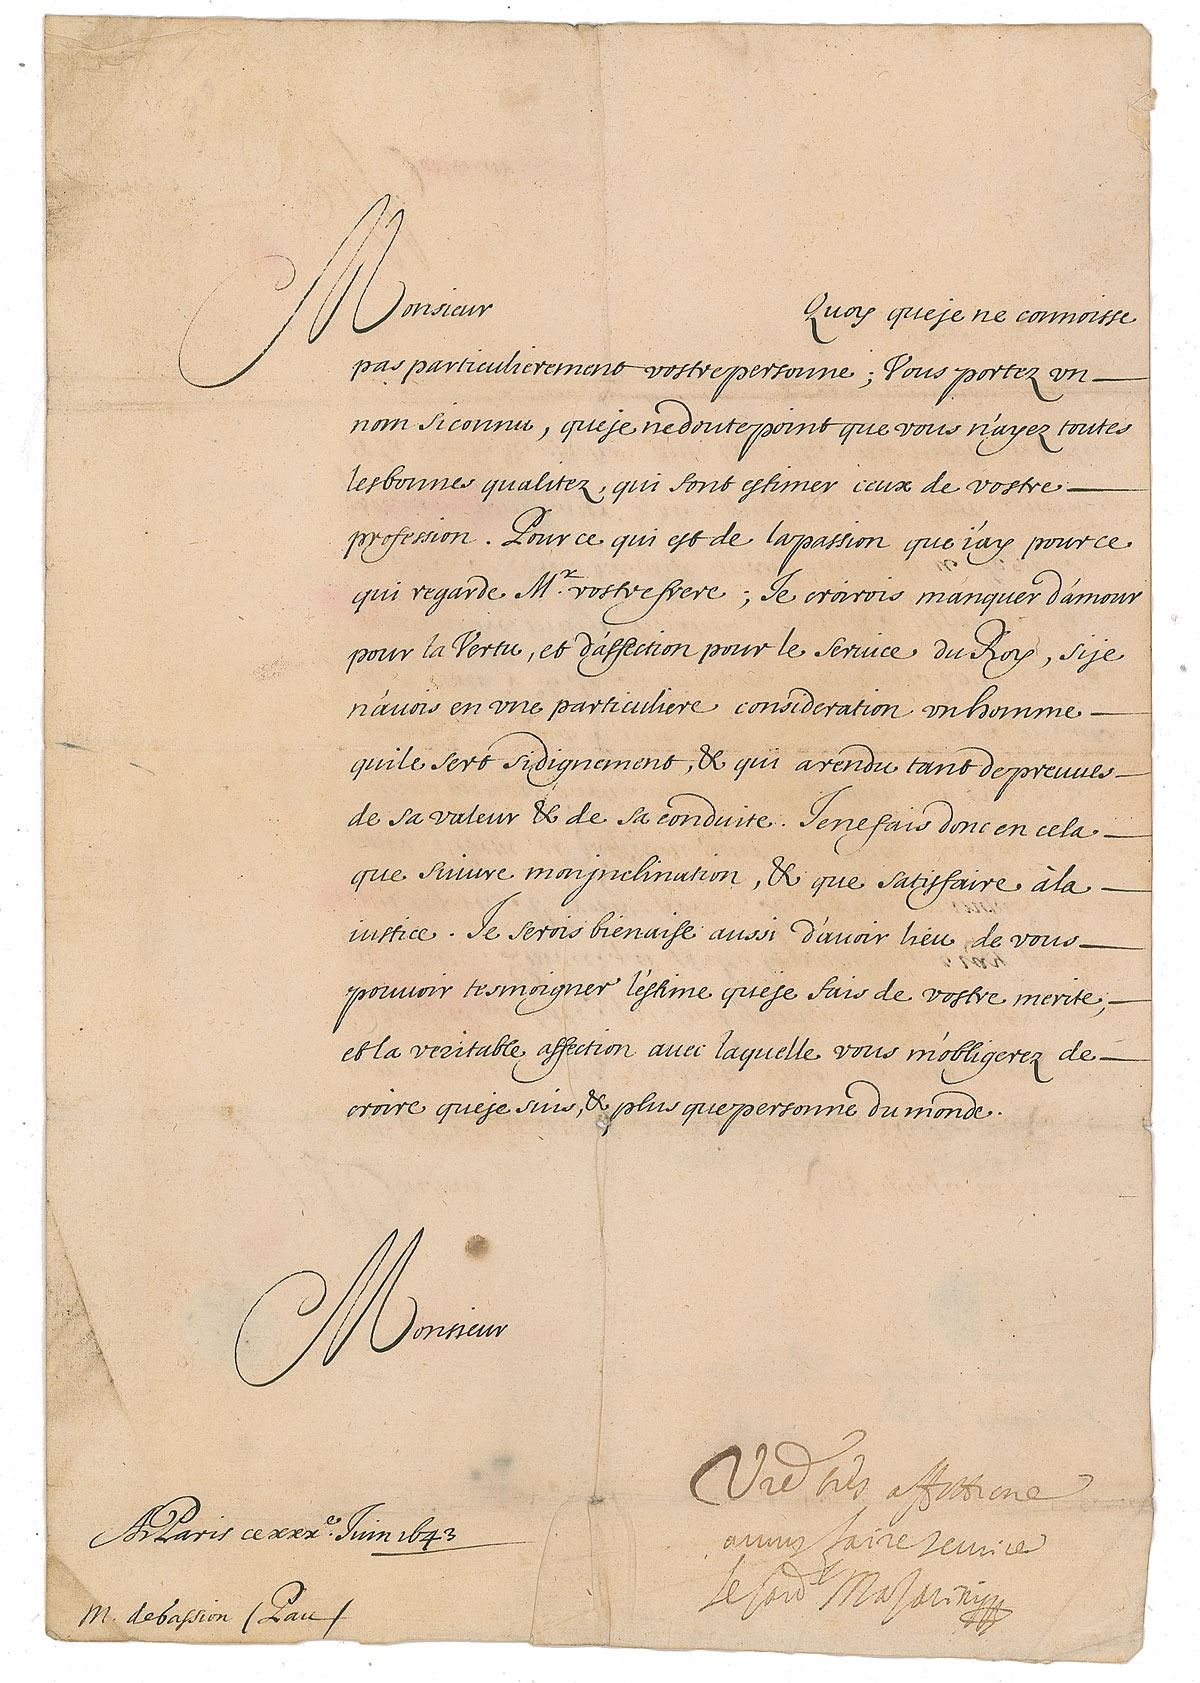 Monsieur Quoy que je ne connoisse
pas particulierement vostre personne ; Vous portez vn
nom si connu, que je ne doute point que vous n'ayez toutes
les bonnes qualitez, qui font estimer ceux de vostre
profession. Pour ce qui est de la passion que i'ay pour ce
qui regarde Mr. vostre frere ; Je croirois manquer d'amour
pour la Vertu, et d'affection pour le seruice du Roy, si je
n'auois en vne particuliere consideration vn homme
qui le sert si dignement, & qui a rendu tant de preuues
de sa valeur & de sa conduite. Je ne fais donc en cela
que suiure mon jnclination, & que satisfaire à la
iustice. Je serois bien aise aussi d'auoir lieu de vous
pouuoir tesmoigner l'estime que je fais de vostre merite,
et la veritable affection auec laquelle vous m'obligerez de
croire que je suis, & plus que personne du monde.
Monsieur
Vre très affettione
a vous faire seruice
le Card.l Mazarini
A Paris ce xxxe. Juin 1643
M. de bassion (Pau)